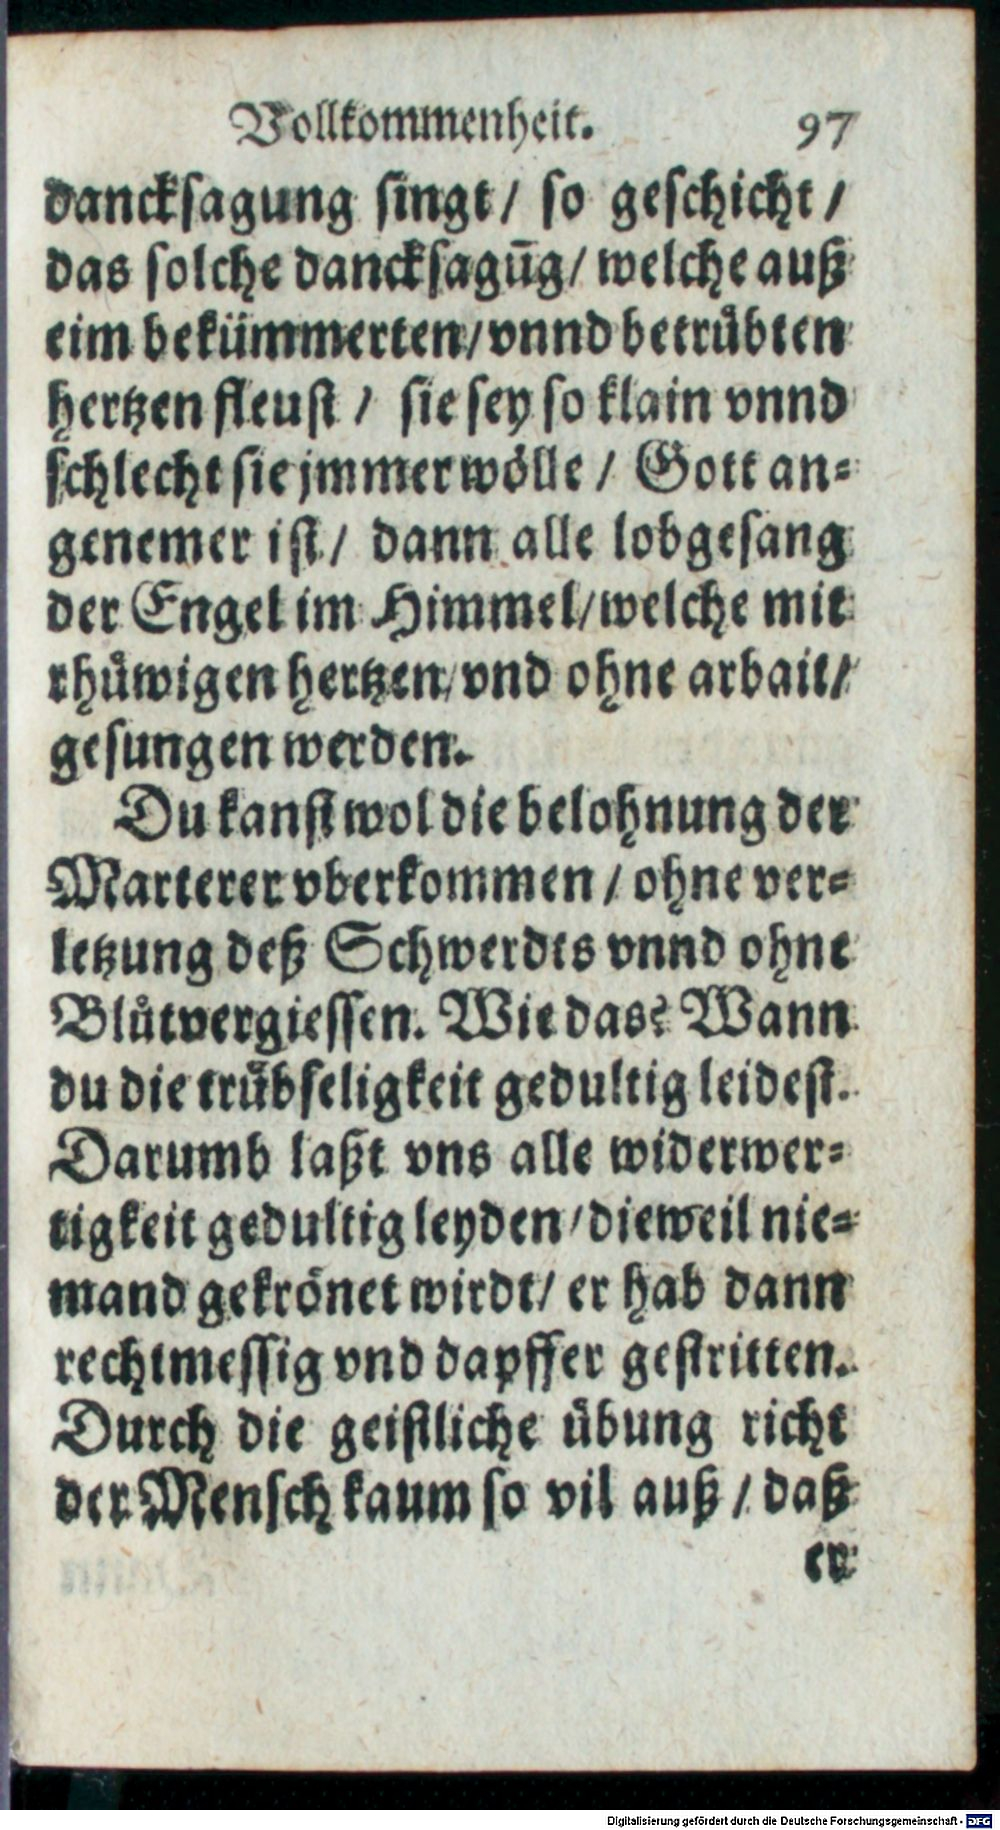 Vollkommenheit. 97
dancksagung singt / so geschicht /
das solche dancksagūg / welche auß
eim bekümmerten / vnnd betrübten
hertzen fleust / sie sey so klain vnnd
schlecht sie jmmer wölle / Gott an=
genemer ist / dann alle lobgesang
der Engel im Himmel / welche mit
rhüwigen hertzen / vnd ohne arbait /
gesungen werden.
Du kanst wol die belohnung der
Marterer vberkommen / ohne ver=
letzung deß Schwerdts vnnd ohne
Blůtvergiessen. Wie das? Wann
du die trübseligkeit gedultig leidest.
Darumb laßt vns alle widerwer=
tigkeit gedultig leyden / dieweil nie=
mand gekrönet wirdt / er hab dann
rechtmessig vnd dapffer gestritten.
Durch die geistliche übung richt
der Mensch kaum so vil auß / daß
er
Digitalisierung gefördert durch die Deutsche Forschungsgemeinschaft - DFG